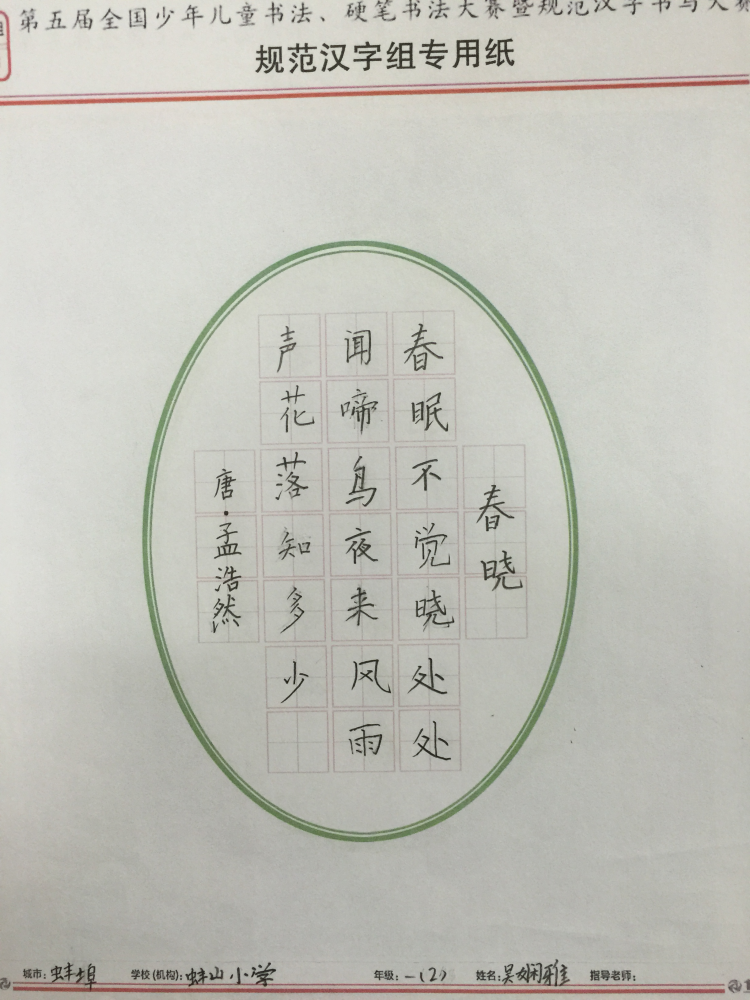 第五届全国少年儿童书法、硬笔书法大赛暨规范汉字书写大赛
规范汉字组专用纸
春晓
春眠不觉晓处处
闻啼鸟夜来风雨
声花落知多少
唐·孟浩然
城市：蚌埠 学校(机构)：蚌山小学 年级：一(2) 姓名：吴娴雅 指导老师：